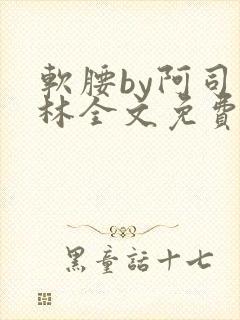 軟腰by阿司
林全文免費
黑童話十七